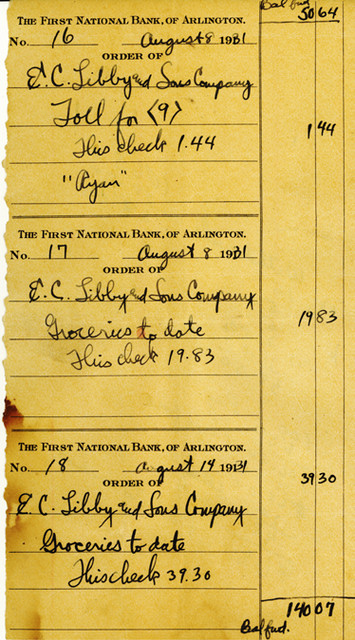 Bal fwd. 50 64
THE FIRST NATIONAL BANK, OF ARLINGTON.
No. 16 August 8 1931
ORDER OF
E. C. Libby and Sons Company
Toll for <9>
This check 1.44 1 44
"Ryan"
THE FIRST NATIONAL BANK, OF ARLINGTON.
No. 17 August 8 1931
ORDER OF
E. C. Libby and Sons Company
Groceries to date 19 83
This check 19.83
THE FIRST NATIONAL BANK, OF ARLINGTON.
No. 18 August 14 1931
ORDER OF 39 30
E. C. Libby and Sons Company
Groceries to date
This check 39.30
140 07
Bal fwd.